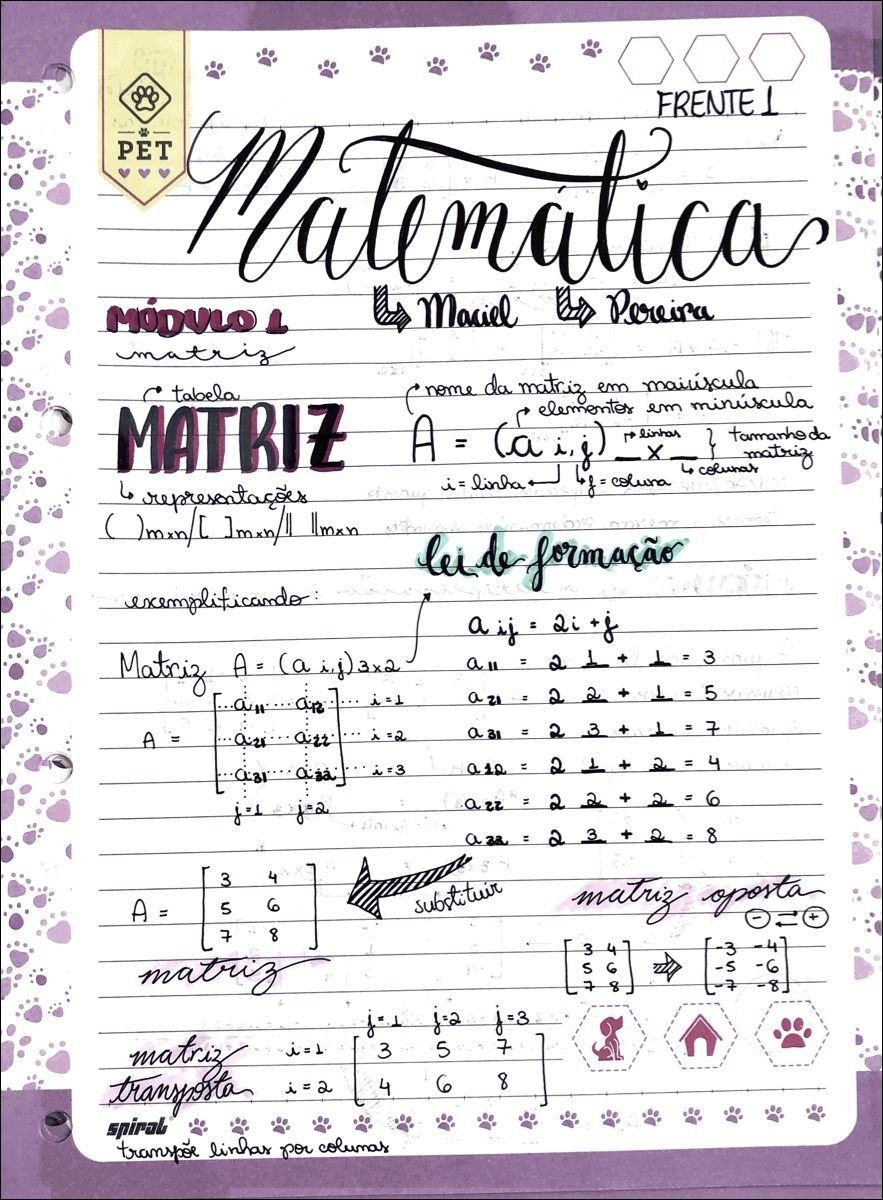 PET
FRENTE 1
Matemática
↳ Maciel ↳ Pereira
MÓDULO 1
matriz
tabela
MATRIZ
↳ representações
( )m×n/[ ]m×n/‖ ‖m×n
nome da matriz em maiúscula
elementos em minúscula
A = (a i,j) __ × __ } tamanho da matriz
linhas
colunas
i = linha
j = coluna
lei de formação
exemplificando:
Matriz A = (a i,j) 3×2
A = [ a11 a12 ] i=1
a21 a22 i=2
a31 a32 i=3
j=1 j=2
a ij = 2i + j
a11 = 2 1 + 1 = 3
a21 = 2 2 + 1 = 5
a31 = 2 3 + 1 = 7
a12 = 2 1 + 2 = 4
a22 = 2 2 + 2 = 6
a32 = 2 3 + 2 = 8
substituir
A = [ 3 4
5 6
7 8 ]
matriz
matriz oposta
- ⇄ +
[ 3 4 ⇨ [ -3 -4
5 6 -5 -6
7 8 ] -7 -8 ]
matriz transposta
j=1 j=2 j=3
i=1 [ 3 5 7
i=2 4 6 8 ]
spiral
transpõe linhas por colunas